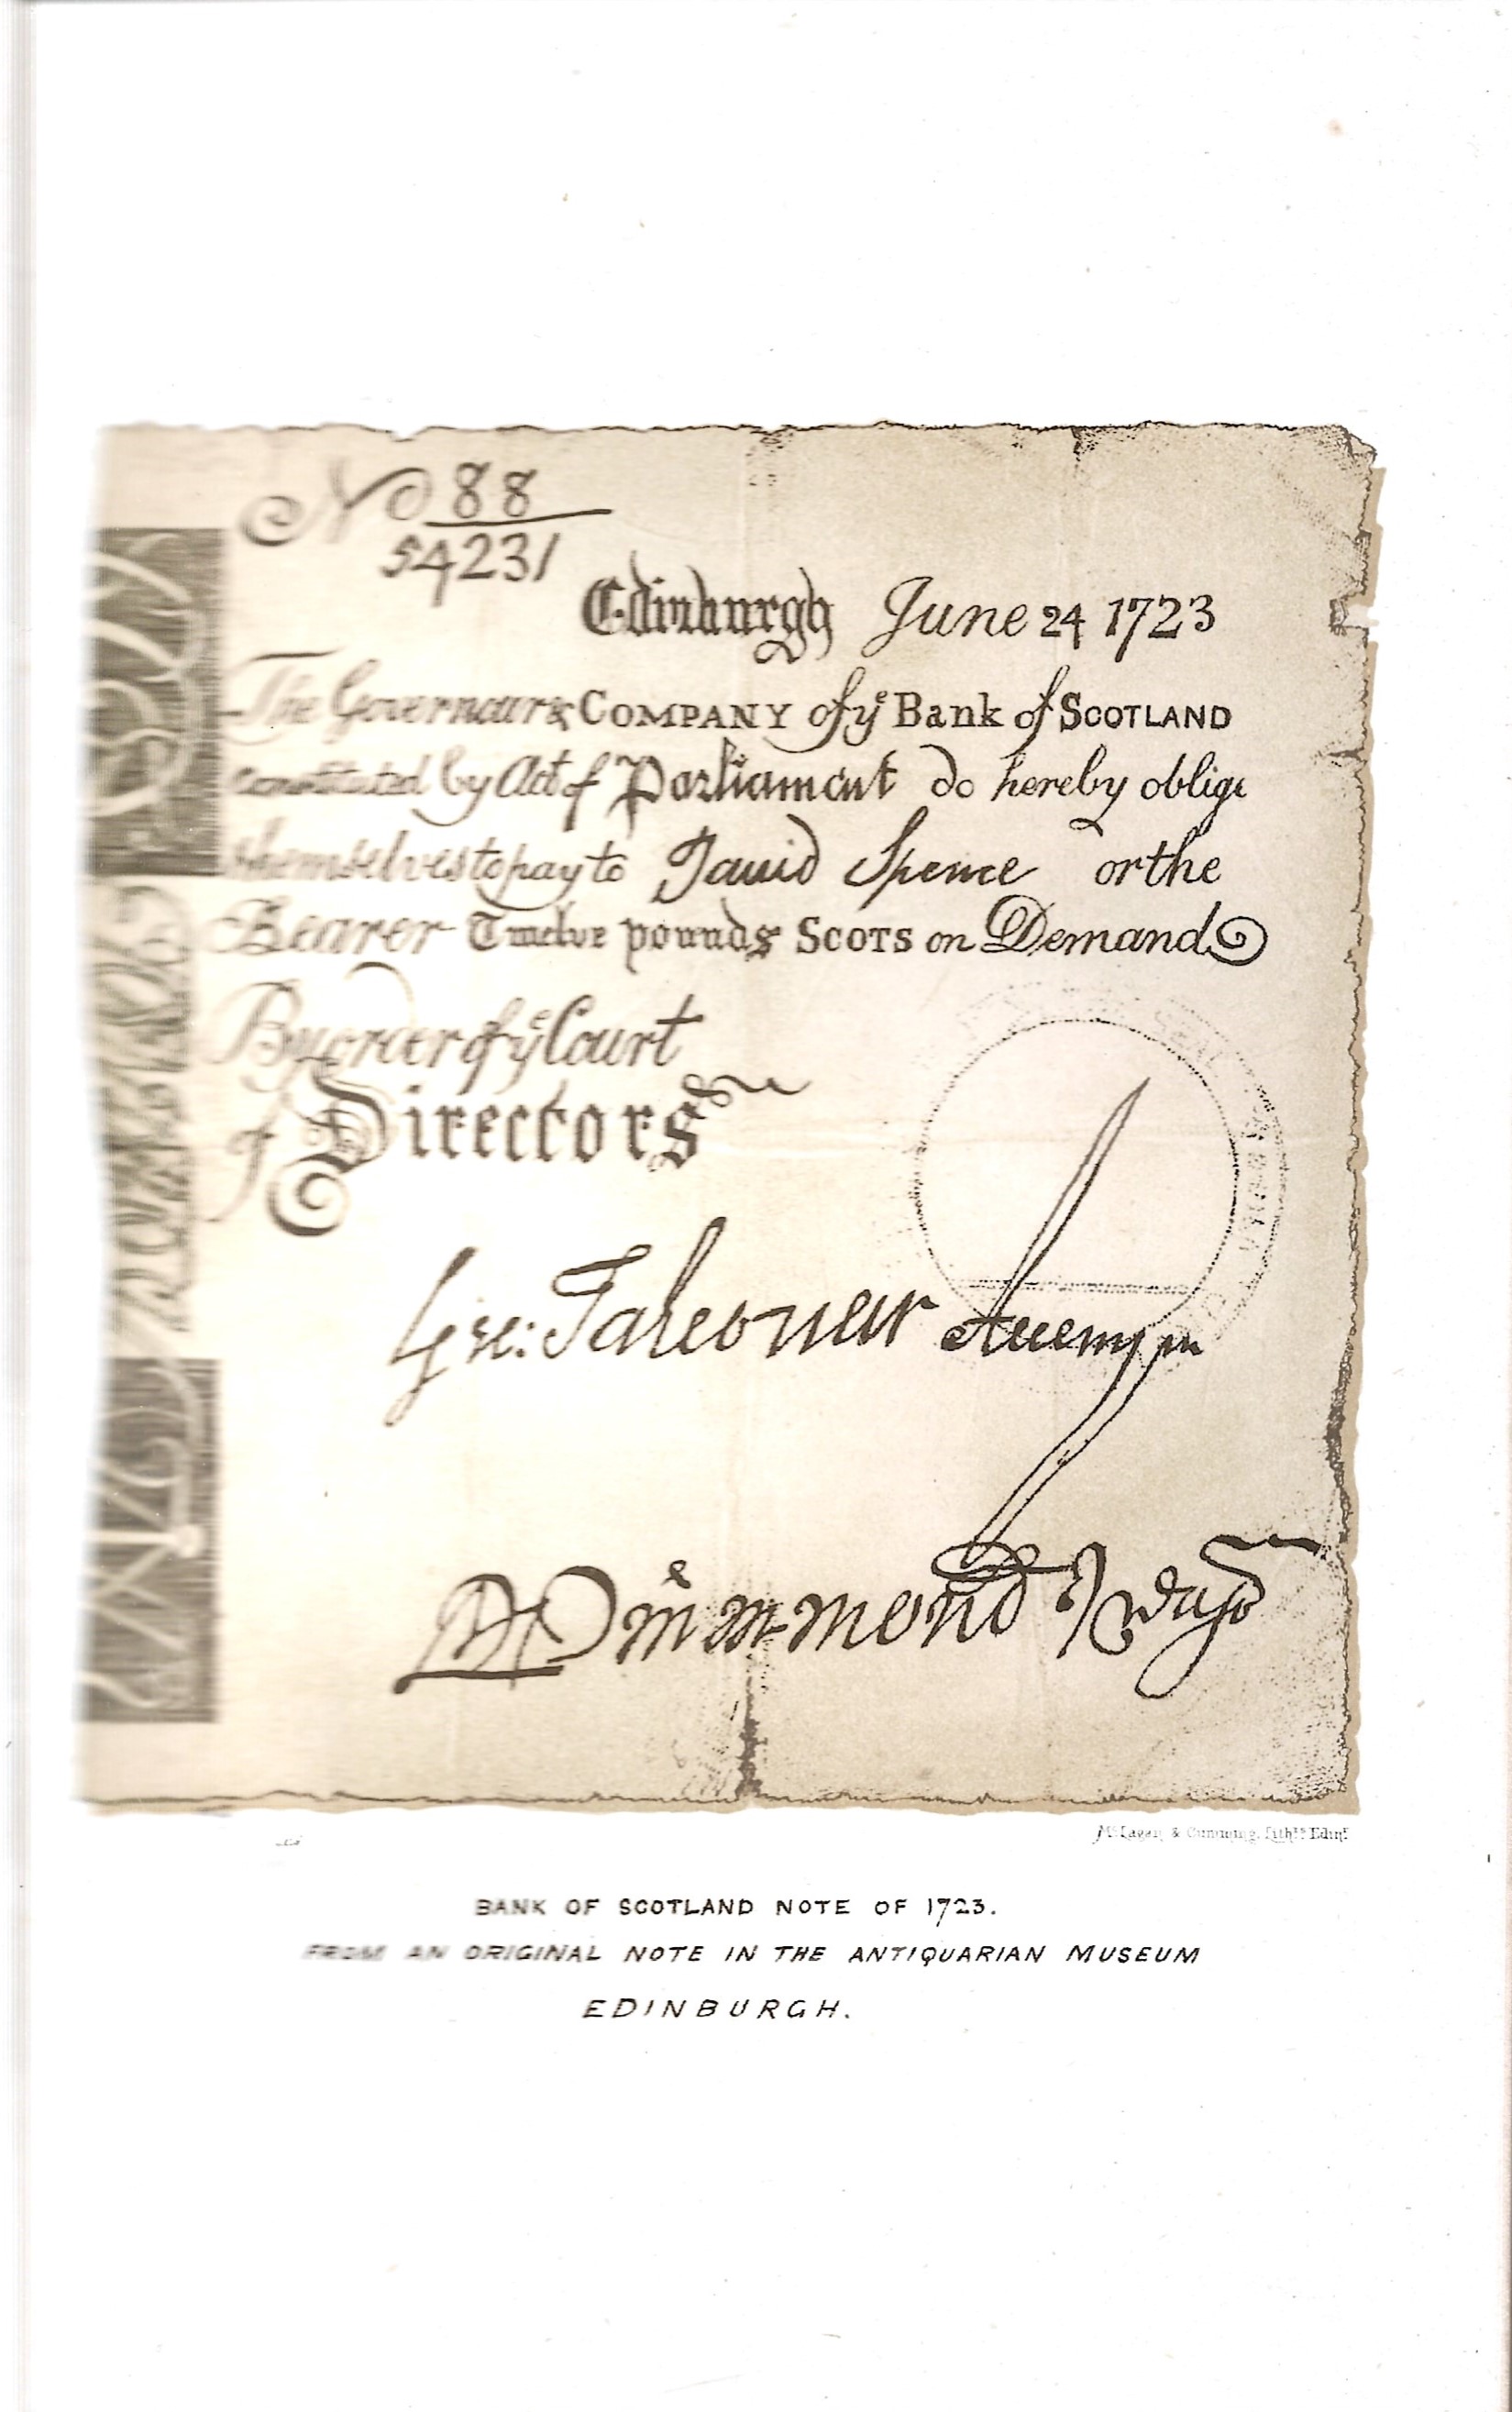 No 88
54231
Edinburgh June 24 1723
The Governour & COMPANY of yͤ Bank of SCOTLAND
constituted by Act of Parliament do hereby oblige
themselves to pay to David Spence or the
Bearer Twelve pounds SCOTS on Demand
By order of yͤ Court
of Directors
Geo: Falconar
Drummond
Mc Lagan & Cumming, Lithrs Edinr
BANK OF SCOTLAND NOTE OF 1723.
FROM AN ORIGINAL NOTE IN THE ANTIQUARIAN MUSEUM
EDINBURGH.